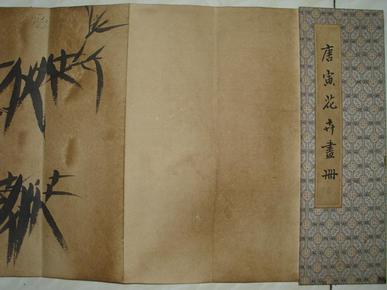 唐寅花卉畫冊